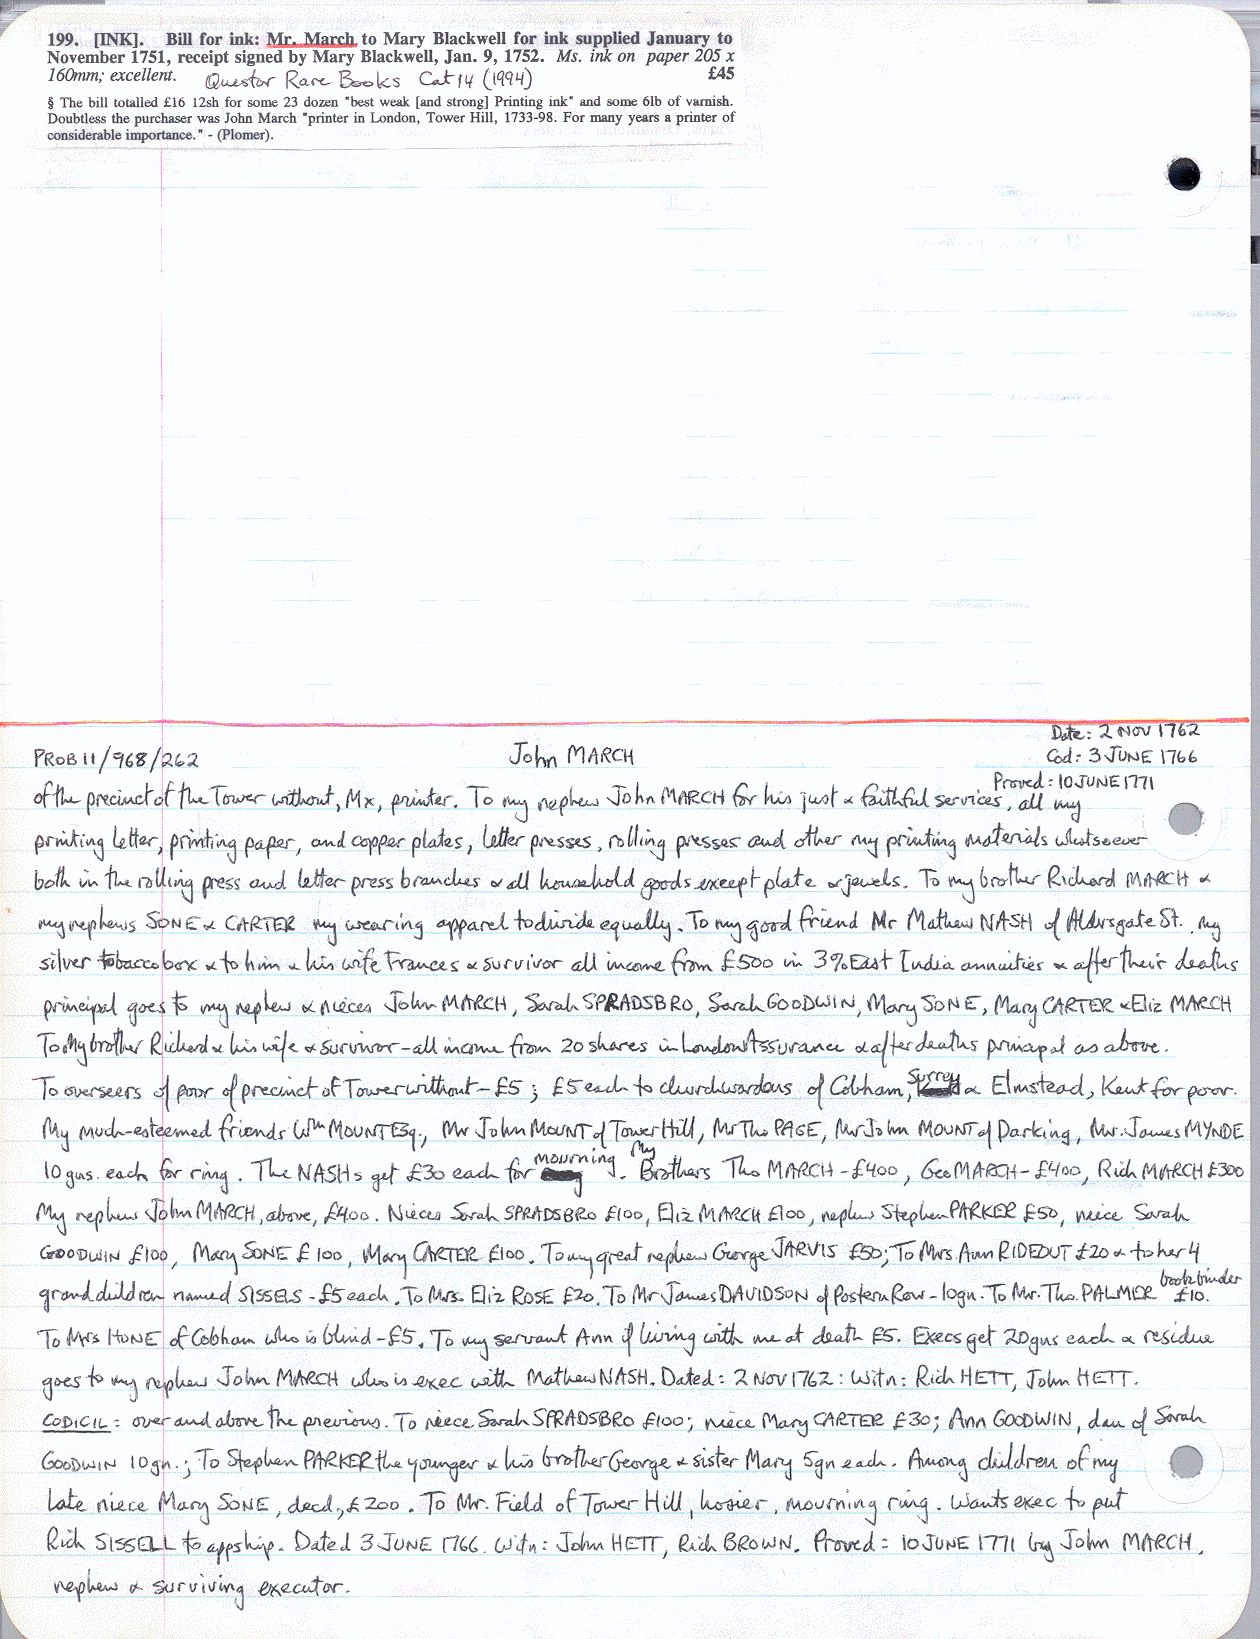 199. [INK]. Bill for ink: Mr. March to Mary Blackwell for ink supplied January to
November 1751, receipt signed by Mary Blackwell, Jan. 9, 1752. Ms. ink on paper 205 x
160mm; excellent. Questor Rare Books Cat 14 (1994) £45
§ The bill totalled £16 12sh for some 23 dozen "best weak [and strong] Printing ink" and some 6lb of varnish.
Doubtless the purchaser was John March "printer in London, Tower Hill, 1733-98. For many years a printer of
considerable importance." - (Plomer).
Date: 2 NOV 1762
PROB 11/968/262 John MARCH Cod: 3 JUNE 1766
Proved: 10 JUNE 1771
of the precinct of the Tower without, Mx, printer. To my nephew John MARCH for his just & faithful services, all my
printing letter, printing paper, and copper plates, letter presses, rolling presses and other my printing materials whatsoever
both in the rolling press and letter press branches & all household goods except plate & jewels. To my brother Richard MARCH &
my nephews SONE & CARTER my wearing apparel to divide equally. To my good friend Mr Mathew NASH of Aldersgate St. my
silver tobacco box & to him & his wife Frances & survivor all income from £500 in 3% East India annuities & after their deaths
principal goes to my nephew & nieces John MARCH, Sarah SPRADSBRO, Sarah GOODWIN, Mary SONE, Mary CARTER & Eliz MARCH
To my brother Richard & his wife & survivor - all income from 20 shares in London Assurance & after deaths principal as above.
To overseers of poor of precinct of Tower without - £5; £5 each to churchwardens of Cobham, Surrey & Elmstead, Kent for poor.
My much-esteemed friends Wm MOUNT Esq., Mr John MOUNT of Tower Hill, Mr Tho PAGE, Mr John MOUNT of Darking, Mr. James MYNDE
10 gns. each for ring. The NASHs get £30 each for mourning. My Brothers Tho MARCH - £400, Geo MARCH - £400, Rich MARCH £300
My nephew John MARCH, above, £400. Nieces Sarah SPRADSBRO £100, Eliz MARCH £100, nephew Stephen PARKER £50, neice Sarah
GOODWIN £100, Mary SONE £100, Mary CARTER £100. To my great nephew George JARVIS £50; To Mrs. Ann RIDEOUT £20 & to her 4
grandchildren named SISSELS - £5 each. To Mrs. Eliz ROSE £20. To Mr James DAVIDSON of Postern Row - 10gn. To Mr. Tho. PALMER bookbinder £10.
To Mrs HONE of Cobham who is blind - £5. To my servant Ann if living with me at death £5. Execs get 20gns each & residue
goes to my nephew John MARCH who is exec with Mathew NASH. Dated: 2 NOV 1762: Witn: Rich HETT, John HETT.
CODICIL: over and above the previous. To neece Sarah SPRADSBRO £100; neece Mary CARTER £30; Ann GOODWIN, dau of Sarah
GOODWIN 10gn.; To Stephen PARKER the younger & his brother George & sister Mary 5gn each. Among children of my
late niece Mary SONE, decd, £200. To Mr. Field of Tower Hill, hosier, mourning ring. Wants exec to put
Rich SISSELL to appship. Dated 3 JUNE 1766. Witn: John HETT, Rich BROWN. Proved: 10 JUNE 1771 by John MARCH,
nephew & surviving executor.